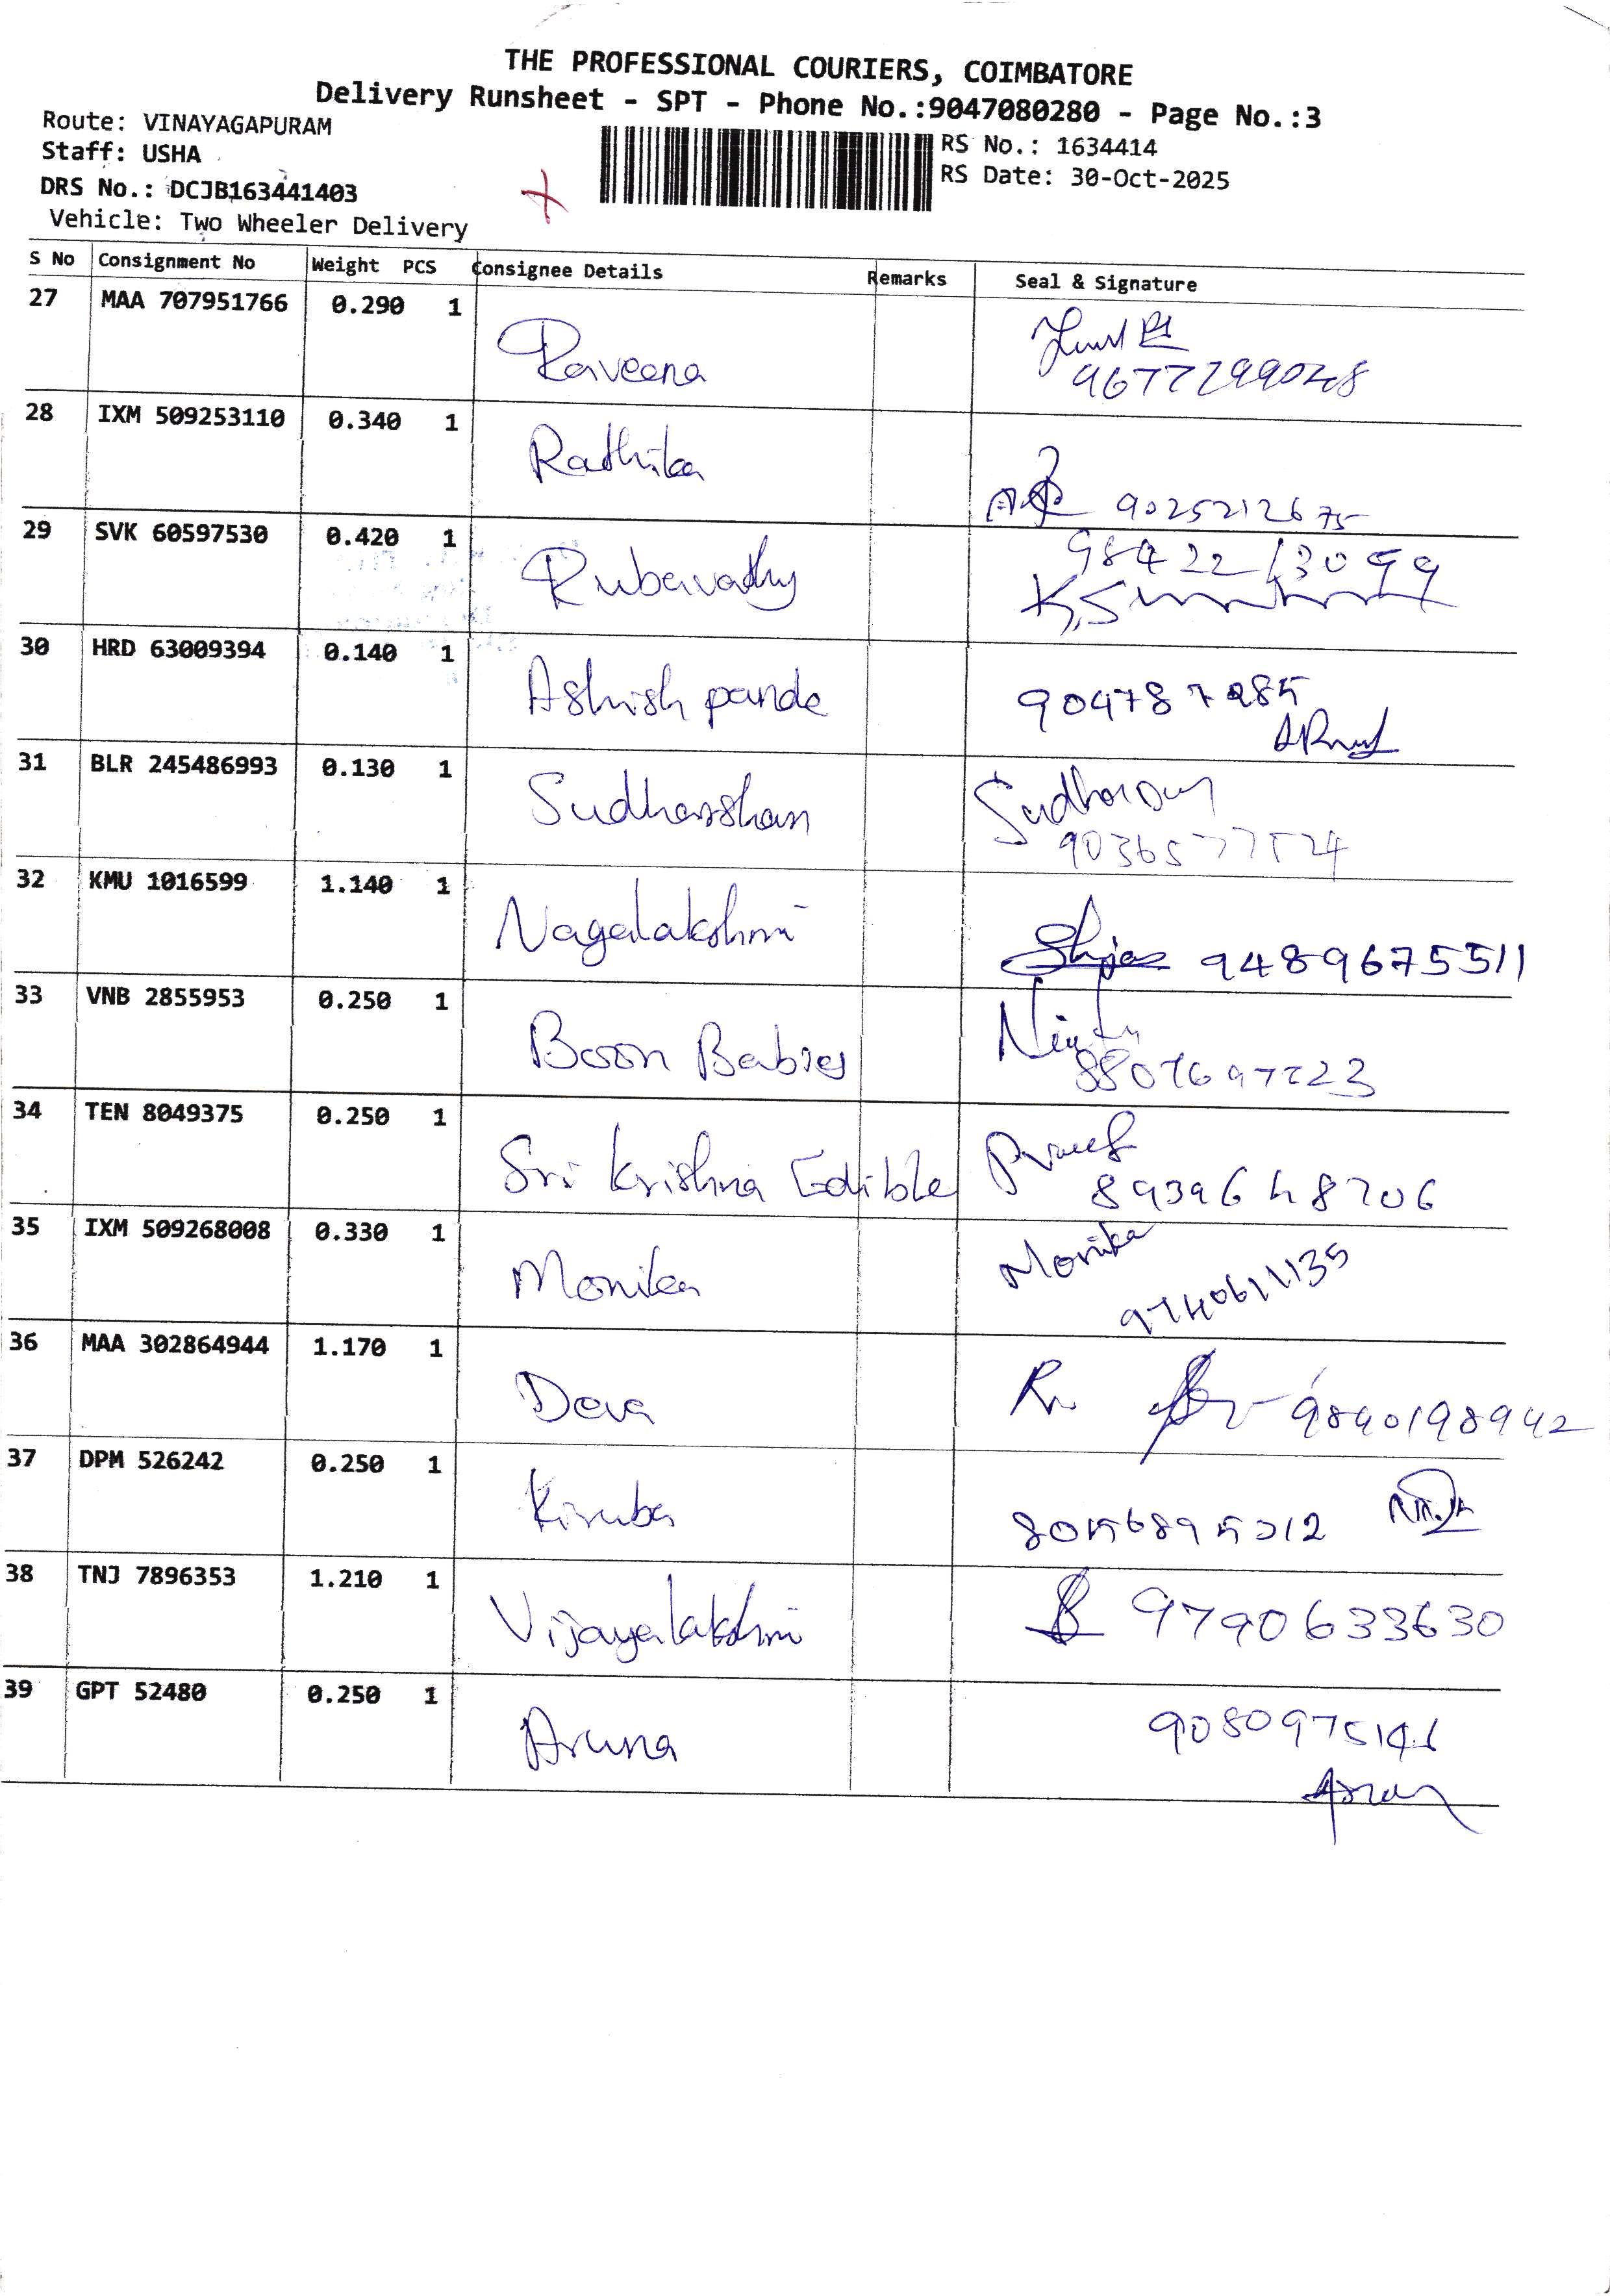 THE PROFESSIONAL COURIERS, COIMBATORE
Delivery Runsheet - SPT - Phone No.:9047080280 - Page No.:3
Route: VINAYAGAPURAM
Staff: USHA
DRS No.: DCJB163441403
Vehicle: Two Wheeler Delivery
RS No.: 1634414
RS Date: 30-Oct-2025
S No Consignment No Weight PCS Consignee Details Remarks Seal & Signature
27 MAA 707951766 0.290 1 Raveena
28 IXM 509253110 0.340 1 Radhika 9025212675
29 SVK 60597530 0.420 1 Rubavathy 9842213099
30 HRD 63009394 0.140 1 Ashish pande 904787285
31 BLR 245486993 0.130 1 Sudharshan 9036577524
32 KMU 1016599 1.140 1 Nagalakshmi 9489675511
33 VNB 2855953 0.250 1 Boon Babies
34 TEN 8049375 0.250 1 Sri Krishna Edible 8939648706
35 IXM 509268008 0.330 1 Monika Monika 9740611135
36 MAA 302864944 1.170 1 Deva 9840198942
37 DPM 526242 0.250 1 Kiruba
38 TNJ 7896353 1.210 1 Vijayalakshmi 9790633630
39 GPT 52480 0.250 1 Aruna 9080975146